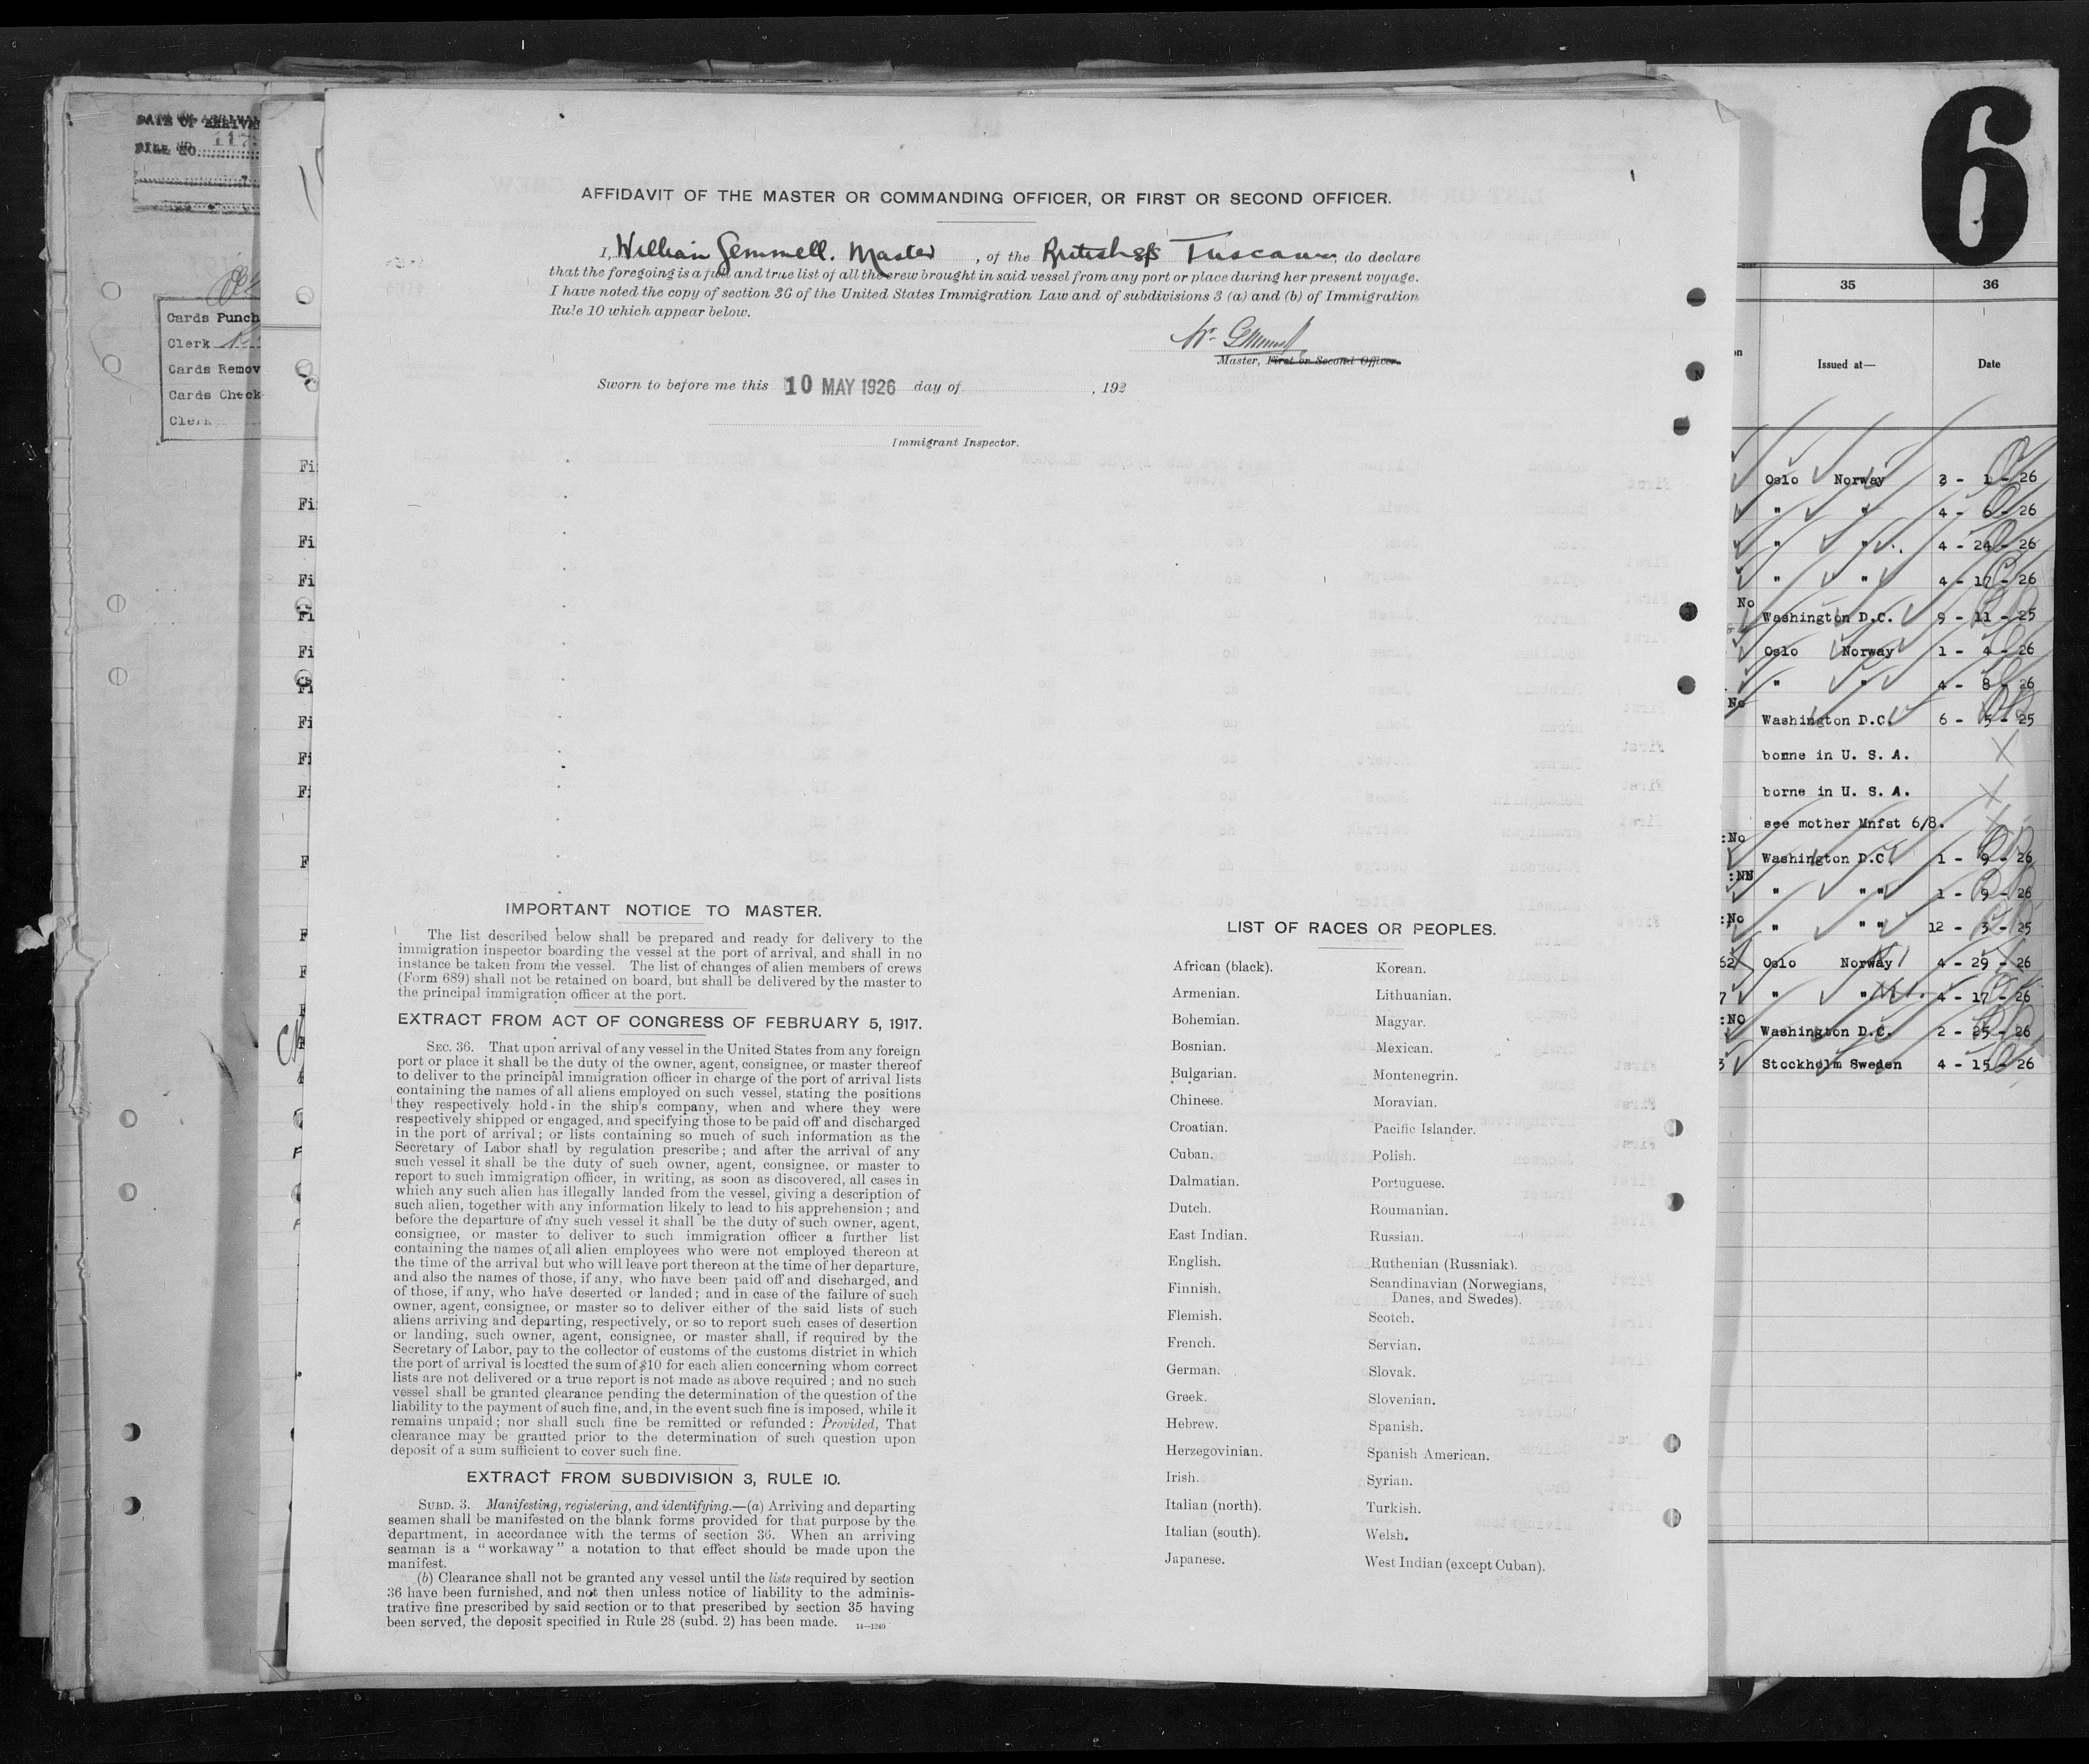 DATE OF ARRIVAL
FILE NO. 117
Cards Punch
Clerk
Cards Remov
Cards Check
Clerk
AFFIDAVIT OF THE MASTER OR COMMANDING OFFICER, OR FIRST OR SECOND OFFICER.
I, William Gemmell. Master, of the British s/s Tuscania, do declare
that the foregoing is a full and true list of all the crew brought in said vessel from any port or place during her present voyage.
I have noted the copy of section 36 of the United States Immigration Law and of subdivisions 3 (a) and (b) of Immigration
Rule 10 which appear below.
Wm Gemmell
Master, First or Second Officer.
Sworn to before me this 10 MAY 1926 day of , 192
Immigrant Inspector.
IMPORTANT NOTICE TO MASTER.
The list described below shall be prepared and ready for delivery to the
immigration inspector boarding the vessel at the port of arrival, and shall in no
instance be taken from the vessel. The list of changes of alien members of crews
(Form 689) shall not be retained on board, but shall be delivered by the master to
the principal immigration officer at the port.
EXTRACT FROM ACT OF CONGRESS OF FEBRUARY 5, 1917.
SEC. 36. That upon arrival of any vessel in the United States from any foreign
port or place it shall be the duty of the owner, agent, consignee, or master thereof
to deliver to the principal immigration officer in charge of the port of arrival lists
containing the names of all aliens employed on such vessel, stating the positions
they respectively hold in the ship's company, when and where they were
respectively shipped or engaged, and specifying those to be paid off and discharged
in the port of arrival; or lists containing so much of such information as the
Secretary of Labor shall by regulation prescribe; and after the arrival of any
such vessel it shall be the duty of such owner, agent, consignee, or master to
report to such immigration officer, in writing, as soon as discovered, all cases in
which any such alien has illegally landed from the vessel, giving a description of
such alien, together with any information likely to lead to his apprehension; and
before the departure of any such vessel it shall be the duty of such owner, agent,
consignee, or master to deliver to such immigration officer a further list
containing the names of all alien employees who were not employed thereon at
the time of the arrival but who will leave port thereon at the time of her departure,
and also the names of those, if any, who have been paid off and discharged, and
of those, if any, who have deserted or landed; and in case of the failure of such
owner, agent, consignee, or master so to deliver either of the said lists of such
aliens arriving and departing, respectively, or so to report such cases of desertion
or landing, such owner, agent, consignee, or master shall, if required by the
Secretary of Labor, pay to the collector of customs of the customs district in which
the port of arrival is located the sum of $10 for each alien concerning whom correct
lists are not delivered or a true report is not made as above required; and no such
vessel shall be granted clearance pending the determination of the question of the
liability to the payment of such fine, and, in the event such fine is imposed, while it
remains unpaid; nor shall such fine be remitted or refunded: Provided, That
clearance may be granted prior to the determination of such question upon
deposit of a sum sufficient to cover such fine.
EXTRACT FROM SUBDIVISION 3, RULE 10.
SUBD. 3. Manifesting, registering, and identifying.—(a) Arriving and departing
seamen shall be manifested on the blank forms provided for that purpose by the
department, in accordance with the terms of section 36. When an arriving
seaman is a "workaway" a notation to that effect should be made upon the
manifest.
(b) Clearance shall not be granted any vessel until the lists required by section
36 have been furnished, and not then unless notice of liability to the adminis-
trative fine prescribed by said section or to that prescribed by section 35 having
been served, the deposit specified in Rule 28 (subd. 2) has been made. 14—1240
LIST OF RACES OR PEOPLES.
African (black).
Armenian.
Bohemian.
Bosnian.
Bulgarian.
Chinese.
Croatian.
Cuban.
Dalmatian.
Dutch.
East Indian.
English.
Finnish.
Flemish.
French.
German.
Greek.
Hebrew.
Herzegovinian.
Irish.
Italian (north).
Italian (south).
Japanese.
Korean.
Lithuanian.
Magyar.
Mexican.
Montenegrin.
Moravian.
Pacific Islander.
Polish.
Portuguese.
Roumanian.
Russian.
Ruthenian (Russniak).
Scandinavian (Norwegians,
Danes, and Swedes).
Scotch.
Servian.
Slovak.
Slovenian.
Spanish.
Spanish American.
Syrian.
Turkish.
Welsh.
West Indian (except Cuban).
6
35 36
Issued at— Date
Oslo Norway 3 - 1 - 26
" " 4 - 6 - 26
" " 4 - 24 - 26
" " 4 - 17 - 26
No
Washington D.C. 9 - 11 - 25
Oslo Norway 1 - 4 - 26
" " 4 - 8 - 26
No
Washington D.C. 6 - 5 - 25
borne in U. S. A.
borne in U. S. A.
see mother Mnfst 6/8.
:No
Washington D.C. 1 - 9 - 26
" " " 1 - 9 - 26
:No
" " " 12 - 3 - 25
Oslo Norway 4 - 29 - 26
" " 4 - 17 - 26
:NO
Washington D.C. 2 - 25 - 26
Stockholm Sweden 4 - 15 - 26